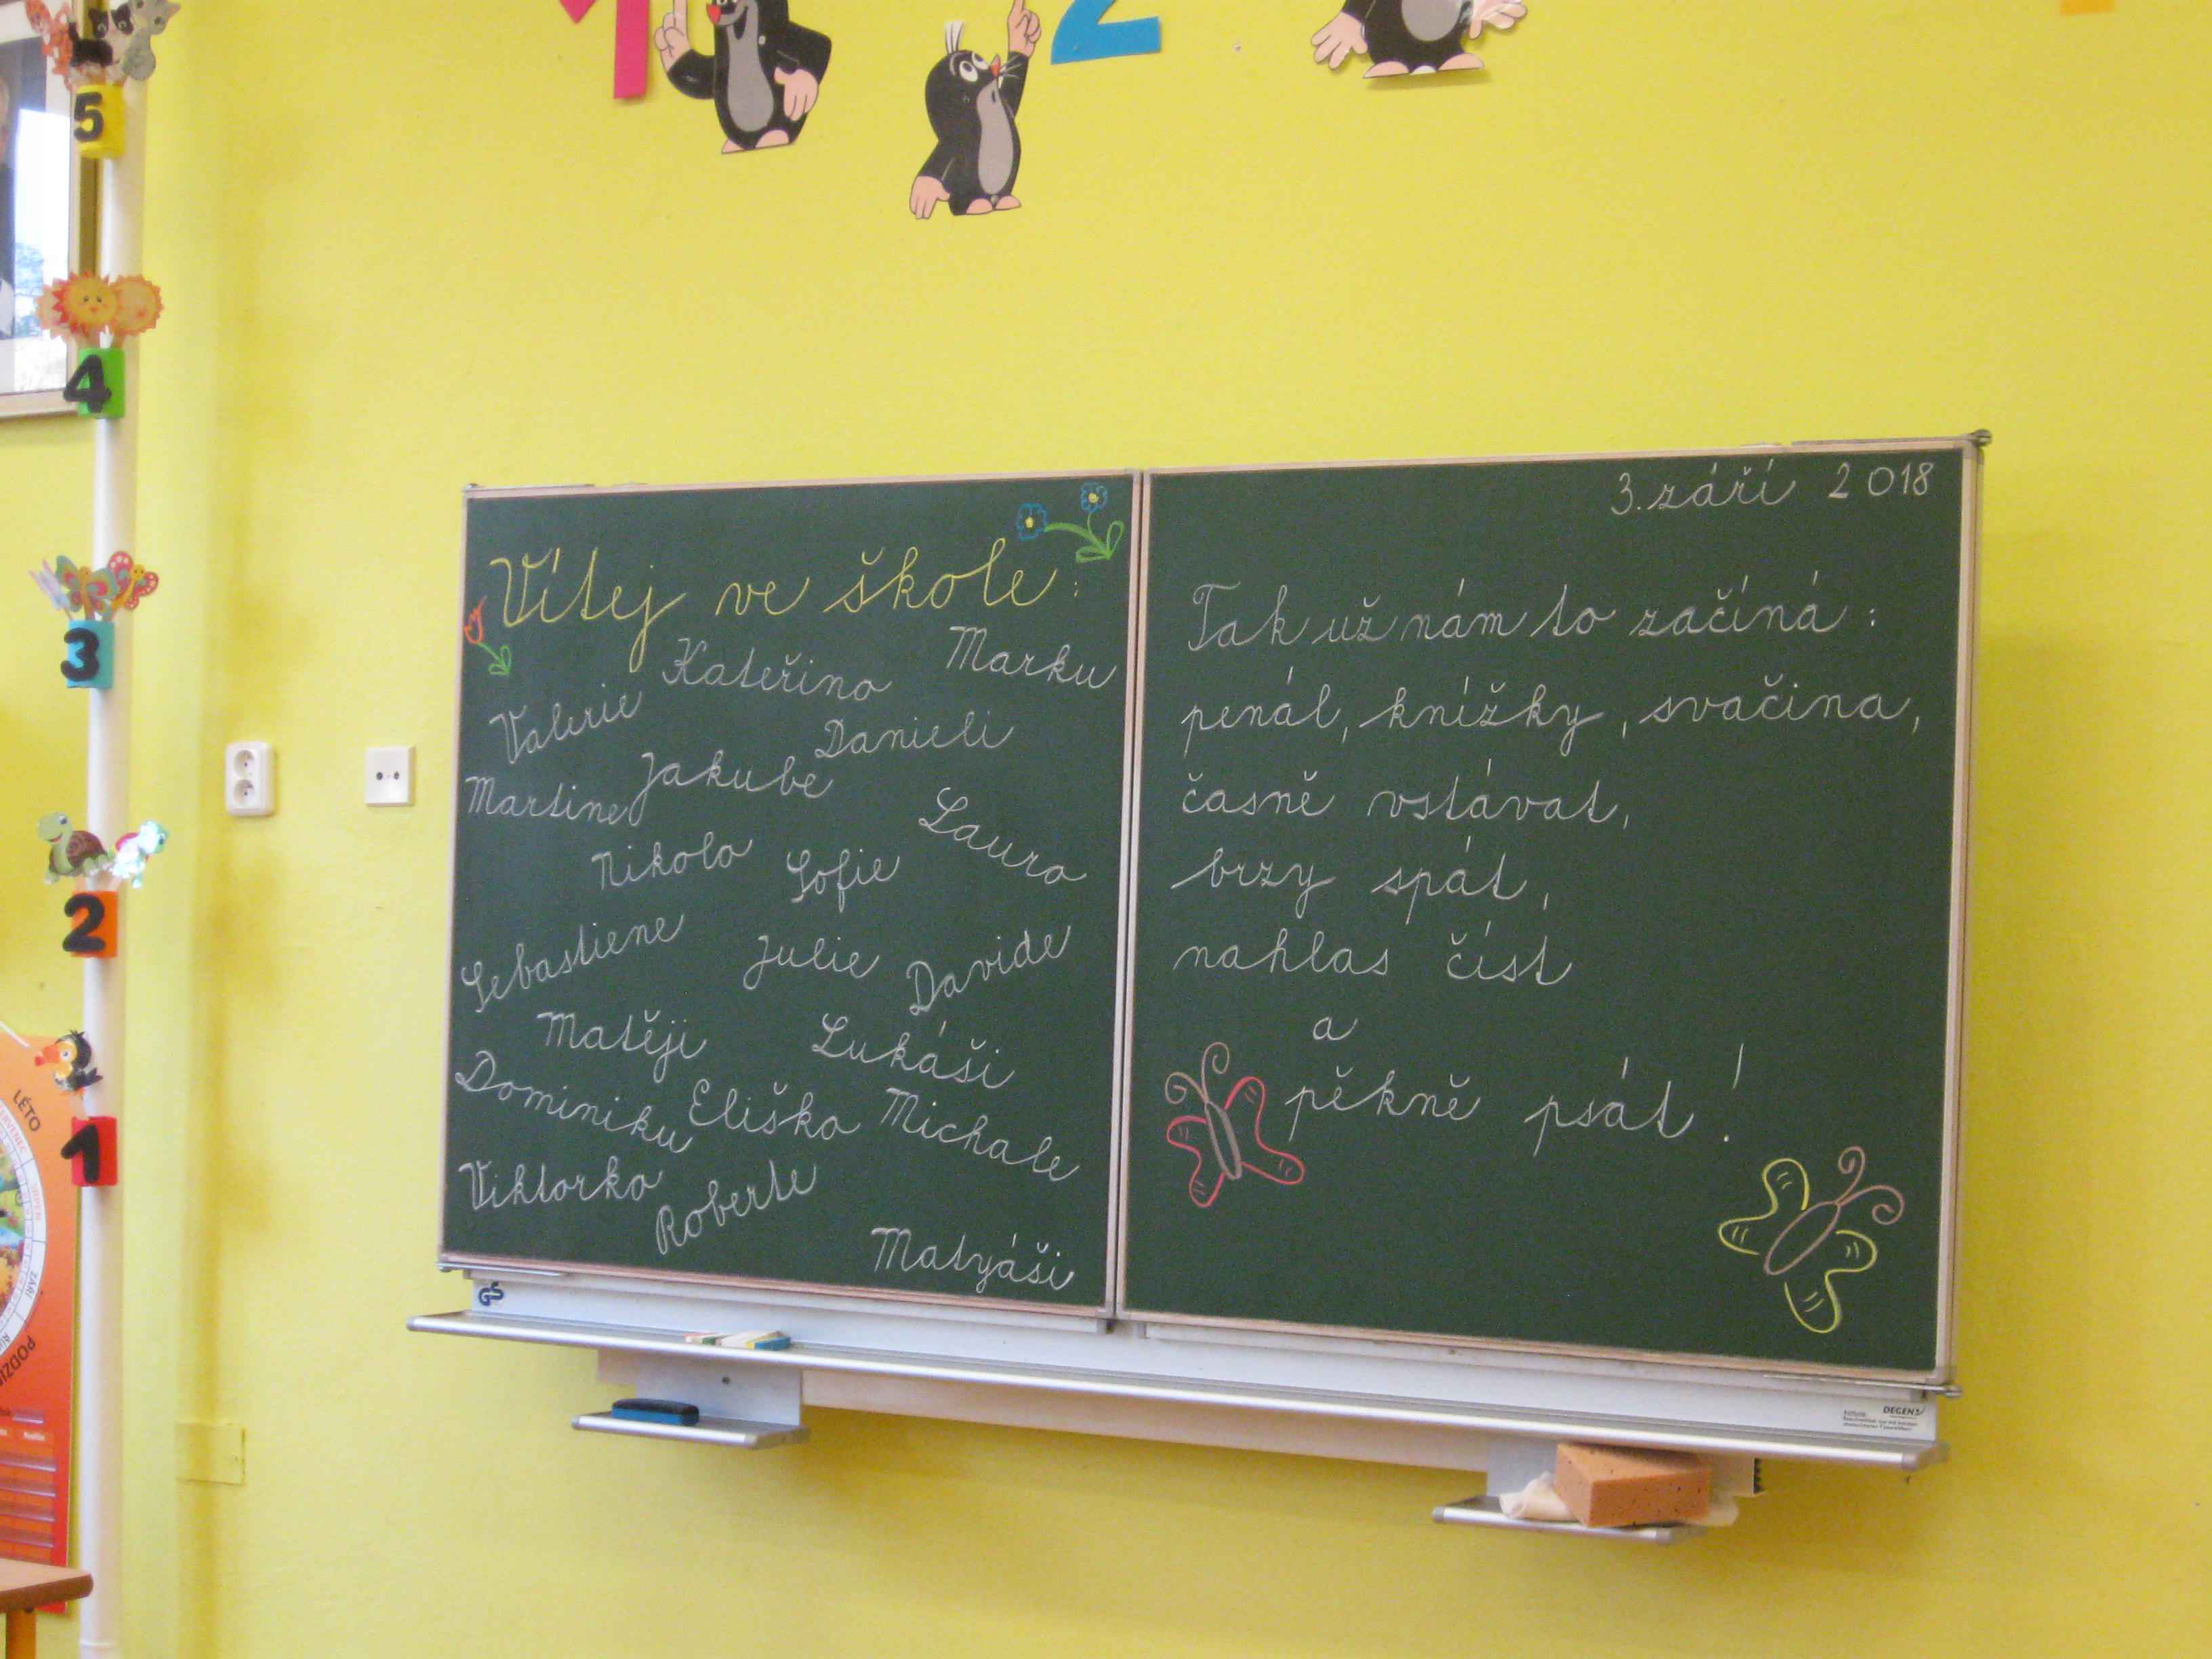 1
2
5
4
3
2
1
LÉTO
3. září 2018
Vítej ve škole:
Kateřino Marku
Valerie Danieli
Martine Jakube
Nikolo Sofie Lauro
Sebastiene Julie Davide
Matěji Lukáši
Dominiku Eliško Michale
Viktorko Roberte
Matyáši
Tak už nám to začíná:
penál, knížky, svačina,
časně vstávat,
brzy spát,
nahlas číst
a
pěkně psát!
GS
DEGEN
ZÁŘÍ